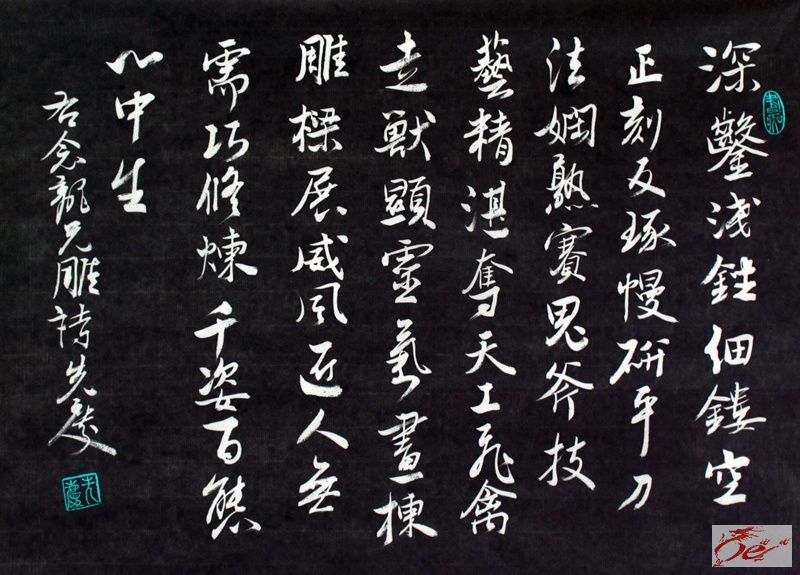 深鑿淺銼細鏤空
正刻反琢慢研平刀
法嫻熟賽鬼斧技
藝精湛奪天工飛禽
走獸顯靈氣畫棟
雕樑展威風匠人無
需巧修煉千姿百態
心中生
右念龍兄雕詩先慶